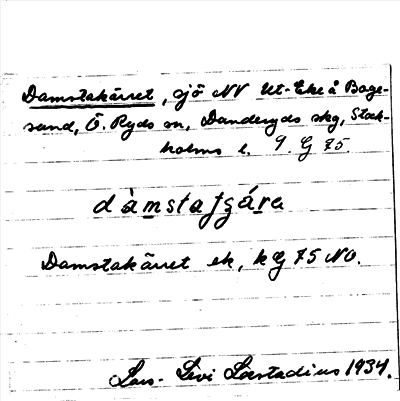 Damstakärret, sjö NV Ut-Eke å Boge-
sund, Ö. Ryds sn, Danderyds skg, Stock-
holms l. 9. G 75.
dàmstafɡára
Damstakärret ek, kG 75 NO.
Lars-Levi Læstadius 1934.